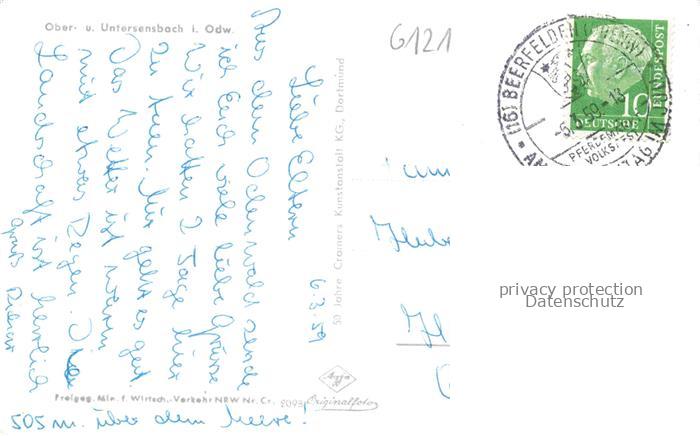 Ober- u. Untersensbach i. Odw.
6121
Liebe Eltern
6.3.59
Aus dem Odenwald sende
ich Euch viele liebe Grüsse
Wir hatten 2 Tage hier
zu tun. Mir geht es gut.
Das Wetter ist warm
mit etwas Regen. Die
Landschaft ist herrlich
Gruß
505 m. über dem Meere.
50 Jahre Cramers Kunstanstalt KG., Dortmund
Freigeg. Min. f. Wirtsch.-Verkehr NRW Nr. Cr.
Agfa
Originalfoto
(16) BEERFELDEN (HESSEN)
-6.3.59-13
PFERDEM
VOLKSFEST
10
DEUTSCHE
BUNDESPOST
privacy protection
Datenschutz